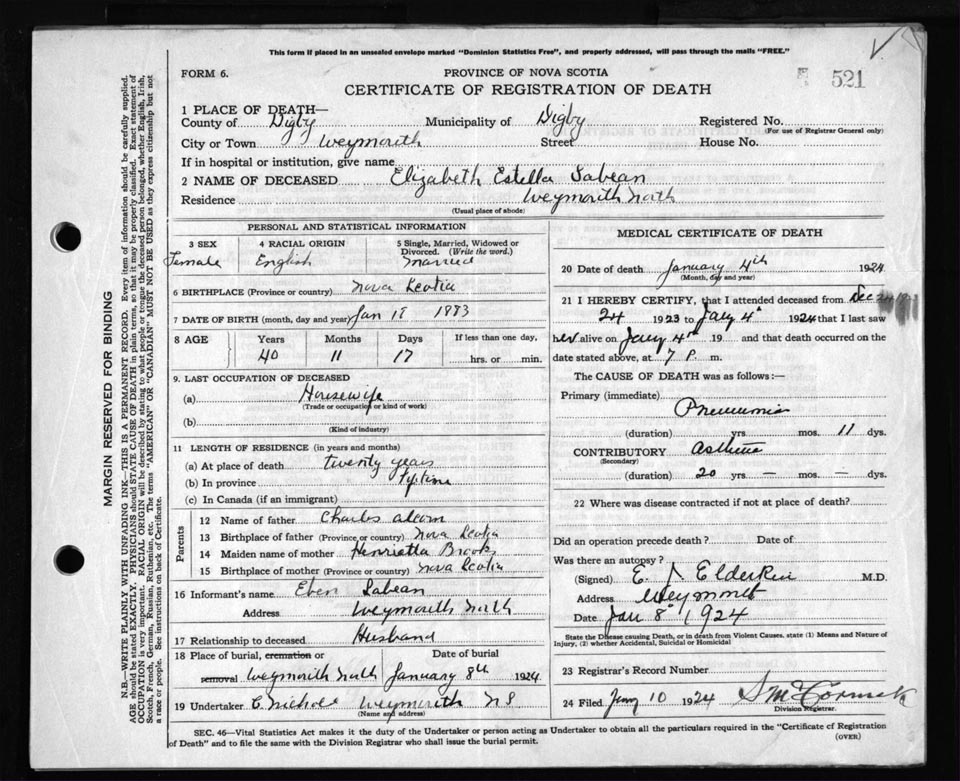 This form if placed in an unsealed envelope marked "Dominion Statistics Free", and properly addressed, will pass through the mails "FREE."
FORM 6.
PROVINCE OF NOVA SCOTIA
521
CERTIFICATE OF REGISTRATION OF DEATH
1 PLACE OF DEATH—
County of Digby Municipality of Digby Registered No.
(For use of Registrar General only)
City or Town Weymouth Street House No.
If in hospital or institution, give name
2 NAME OF DECEASED Elizabeth Estella Sabean
Residence Weymouth North
(Usual place of abode)
PERSONAL AND STATISTICAL INFORMATION
3 SEX 4 RACIAL ORIGIN 5 Single, Married, Widowed or Divorced. (Write the word.)
Female English Married
6 BIRTHPLACE (Province or country) Nova Scotia
7 DATE OF BIRTH (month, day and year) Jan 18 1883
8 AGE Years Months Days If less than one day,
40 11 17 hrs. or min.
9. LAST OCCUPATION OF DECEASED
(a) Housewife
(Trade or occupation or kind of work)
(b)
(Kind of industry)
11 LENGTH OF RESIDENCE (in years and months)
(a) At place of death twenty years
(b) In province
(c) In Canada (if an immigrant)
Parents
12 Name of father Charles Alcorn
13 Birthplace of father (Province or country) Nova Scotia
14 Maiden name of mother Henrietta Brooks
15 Birthplace of mother (Province or country) Nova Scotia
16 Informant's name Eben Sabean
Address Weymouth North
17 Relationship to deceased Husband
18 Place of burial, cremation or removal Date of burial
Weymouth North January 8th 1924
19 Undertaker C. Nichols Weymouth N S
(Name and address)
MEDICAL CERTIFICATE OF DEATH
20 Date of death January 4th 1924
(Month, day and year)
21 I HEREBY CERTIFY, that I attended deceased from Dec
24 1923 to Jany 4th 1924 that I last saw
her alive on Jany 4th 19 and that death occurred on the
date stated above, at 7 P. m.
The CAUSE OF DEATH was as follows:—
Primary (immediate)
Pneumonia
(duration) yrs. mos. 11 dys.
CONTRIBUTORY Asthma
(Secondary)
(duration) 20 yrs. — mos. — dys.
22 Where was disease contracted if not at place of death?
Did an operation precede death? Date of
Was there an autopsy?
(Signed) E. J Elderkin M.D.
Address Weymouth
Date Jan 8th 1924
State the Disease causing Death, or in death from Violent Causes, state (1) Means and Nature of Injury, (2) whether Accidental, Suicidal or Homicidal
23 Registrar's Record Number
24 Filed Jany 10 1924 S McCormick
Division Registrar.
SEC. 46—Vital Statistics Act makes it the duty of the Undertaker or person acting as Undertaker to obtain all the particulars required in the "Certificate of Registration
of Death" and to file the same with the Division Registrar who shall issue the burial permit.
(OVER)
MARGIN RESERVED FOR BINDING
N.B.—WRITE PLAINLY WITH UNFADING INK—THIS IS A PERMANENT RECORD. Every item of information should be carefully supplied.
AGE should be stated EXACTLY. PHYSICIANS should STATE CAUSE OF DEATH in plain terms, so that it may be properly classified. Exact statement of
OCCUPATION is very important. RACIAL ORIGIN will be described by stating to what people or tongue the deceased person belonged, whether English, Irish,
Scotch, French, German, Russian, Ruthenian, etc. The terms "AMERICAN" OR "CANADIAN" MUST NOT BE USED as they express citizenship but not
a race or people. See instructions on back of Certificate.